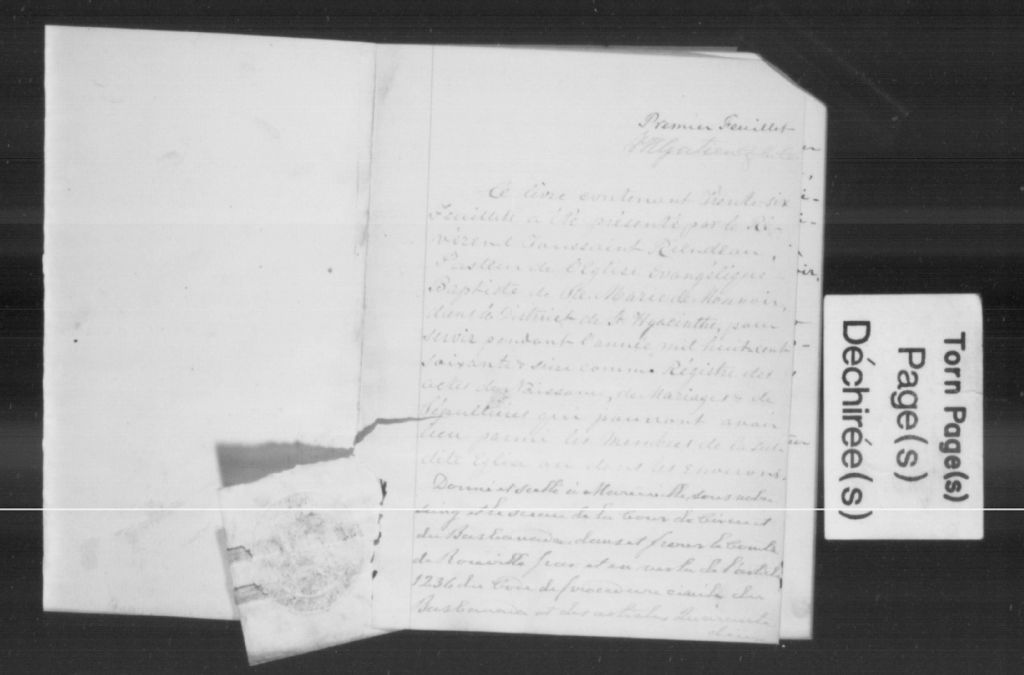 Premier Feuillet
Ce livre contenant trente-six
Feuillets a été présenté par le Ré-
vérend Toussaint Riendeau,
Pasteur de l'Eglise évangélique
Baptiste de Ste Marie de Monnoir,
dans le District de St Hyacinthe, pour
servir pendant l'année mil huit cent
soixante & seize comme Régistre des
actes de Naissance, de Mariages & de
Sépultures qui pourront avoir
lieu parmi les membres de la sus-
dite Eglise ou dans les Environs.
Donné et scellé à Marieville, sous notre
seing et le sceau de la Cour de Circuit
du Bas Canada, dans et pour le Comté
de Rouville
et en vertu de l'article
1236 du Code de procédure civile du
Bas Canada et des articles
Torn Page(s)
Page(s)
Déchirée(s)